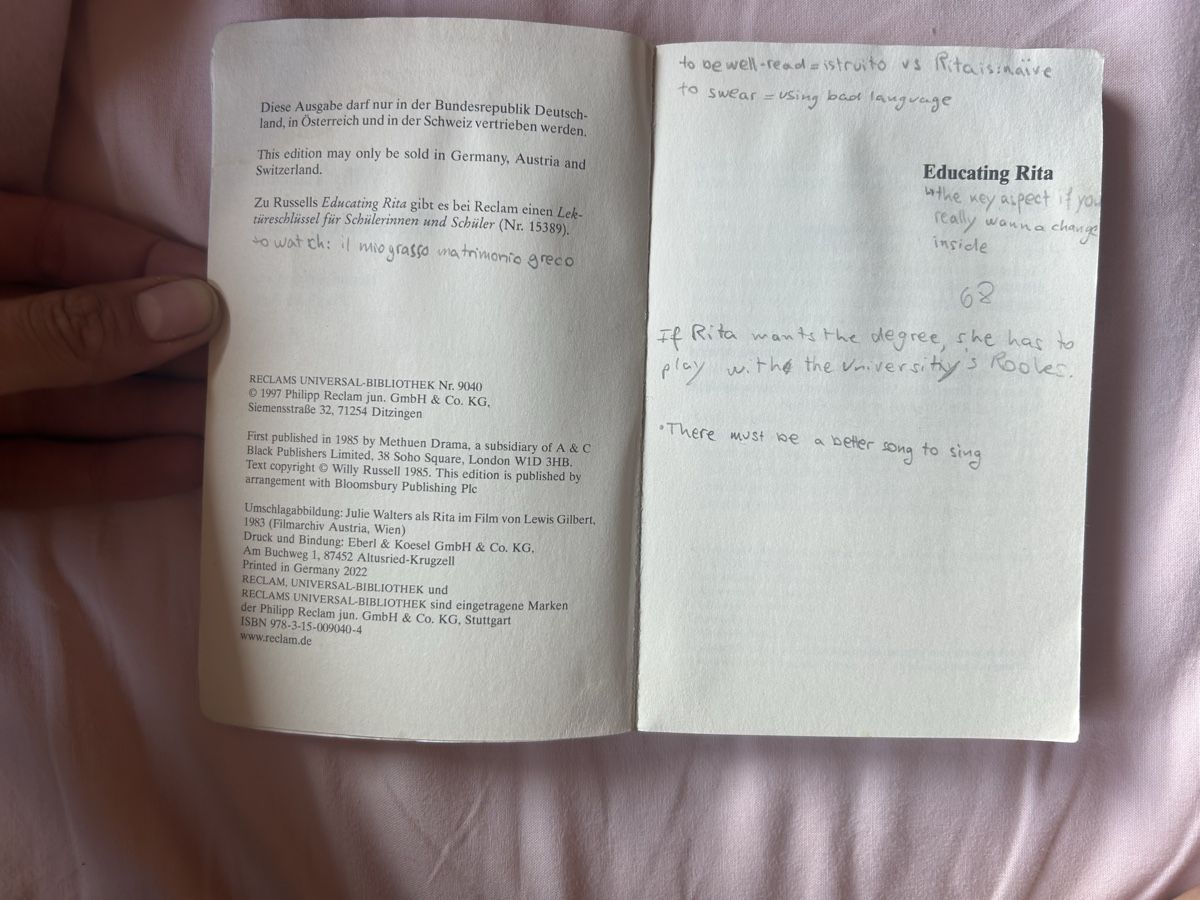 Diese Ausgabe darf nur in der Bundesrepublik Deutsch-
land, in Österreich und in der Schweiz vertrieben werden.
This edition may only be sold in Germany, Austria and
Switzerland.
Zu Russells Educating Rita gibt es bei Reclam einen Lek-
türeschlüssel für Schülerinnen und Schüler (Nr. 15389).
to watch: il mio grasso matrimonio greco
RECLAMS UNIVERSAL-BIBLIOTHEK Nr. 9040
© 1997 Philipp Reclam jun. GmbH & Co. KG,
Siemensstraße 32, 71254 Ditzingen
First published in 1985 by Methuen Drama, a subsidiary of A & C
Black Publishers Limited, 38 Soho Square, London W1D 3HB.
Text copyright © Willy Russell 1985. This edition is published by
arrangement with Bloomsbury Publishing Plc
Umschlagabbildung: Julie Walters als Rita im Film von Lewis Gilbert,
1983 (Filmarchiv Austria, Wien)
Druck und Bindung: Eberl & Koesel GmbH & Co. KG,
Am Buchweg 1, 87452 Altusried-Krugzell
Printed in Germany 2022
RECLAM, UNIVERSAL-BIBLIOTHEK und
RECLAMS UNIVERSAL-BIBLIOTHEK sind eingetragene Marken
der Philipp Reclam jun. GmbH & Co. KG, Stuttgart
ISBN 978-3-15-009040-4
www.reclam.de
to be well-read = istruito vs Rita is: naïve
to swear = using bad language
Educating Rita
↳ the key aspect if you
really wanna change
inside
68
If Rita wants the degree, she has to
play with the university's Rooles.
• There must be a better song to sing